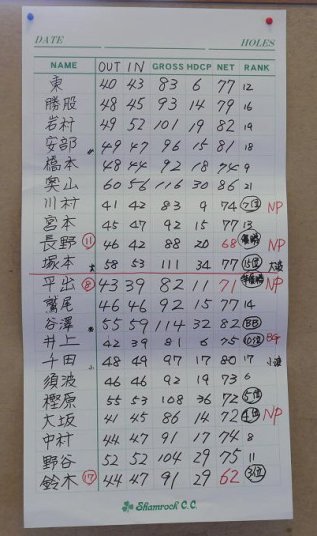 DATE HOLES
NAME OUT IN GROSS HDCP NET RANK
東 40 43 83 6 77 12
勝股 48 45 93 14 79 16
岩村 49 52 101 19 82 19
安部 49 47 96 15 81 18
橋本 48 44 92 18 74 9
奥山 60 56 116 30 86 21
川村 41 42 83 9 74 7位 NP
宮本 45 47 92 15 77 13
長野 11 46 42 88 20 68 優勝 NP
塚本 大 58 53 111 34 77 15位 大波
平出 8 43 39 82 11 71 準優勝 NP
鷲尾 46 46 92 15 77 14
谷澤 55 59 114 32 82 BB
井上 42 39 81 6 75 10位 BG
千田 小 48 49 97 17 80 17 小波
須波 46 46 92 19 73 6
樫原 55 53 108 36 72 5位
大坂 41 45 86 14 72 4位 NP
中村 44 47 91 17 74 8
野谷 52 52 104 29 75 11
鈴木 17 44 47 91 29 62 3位
Shamrock C.C.